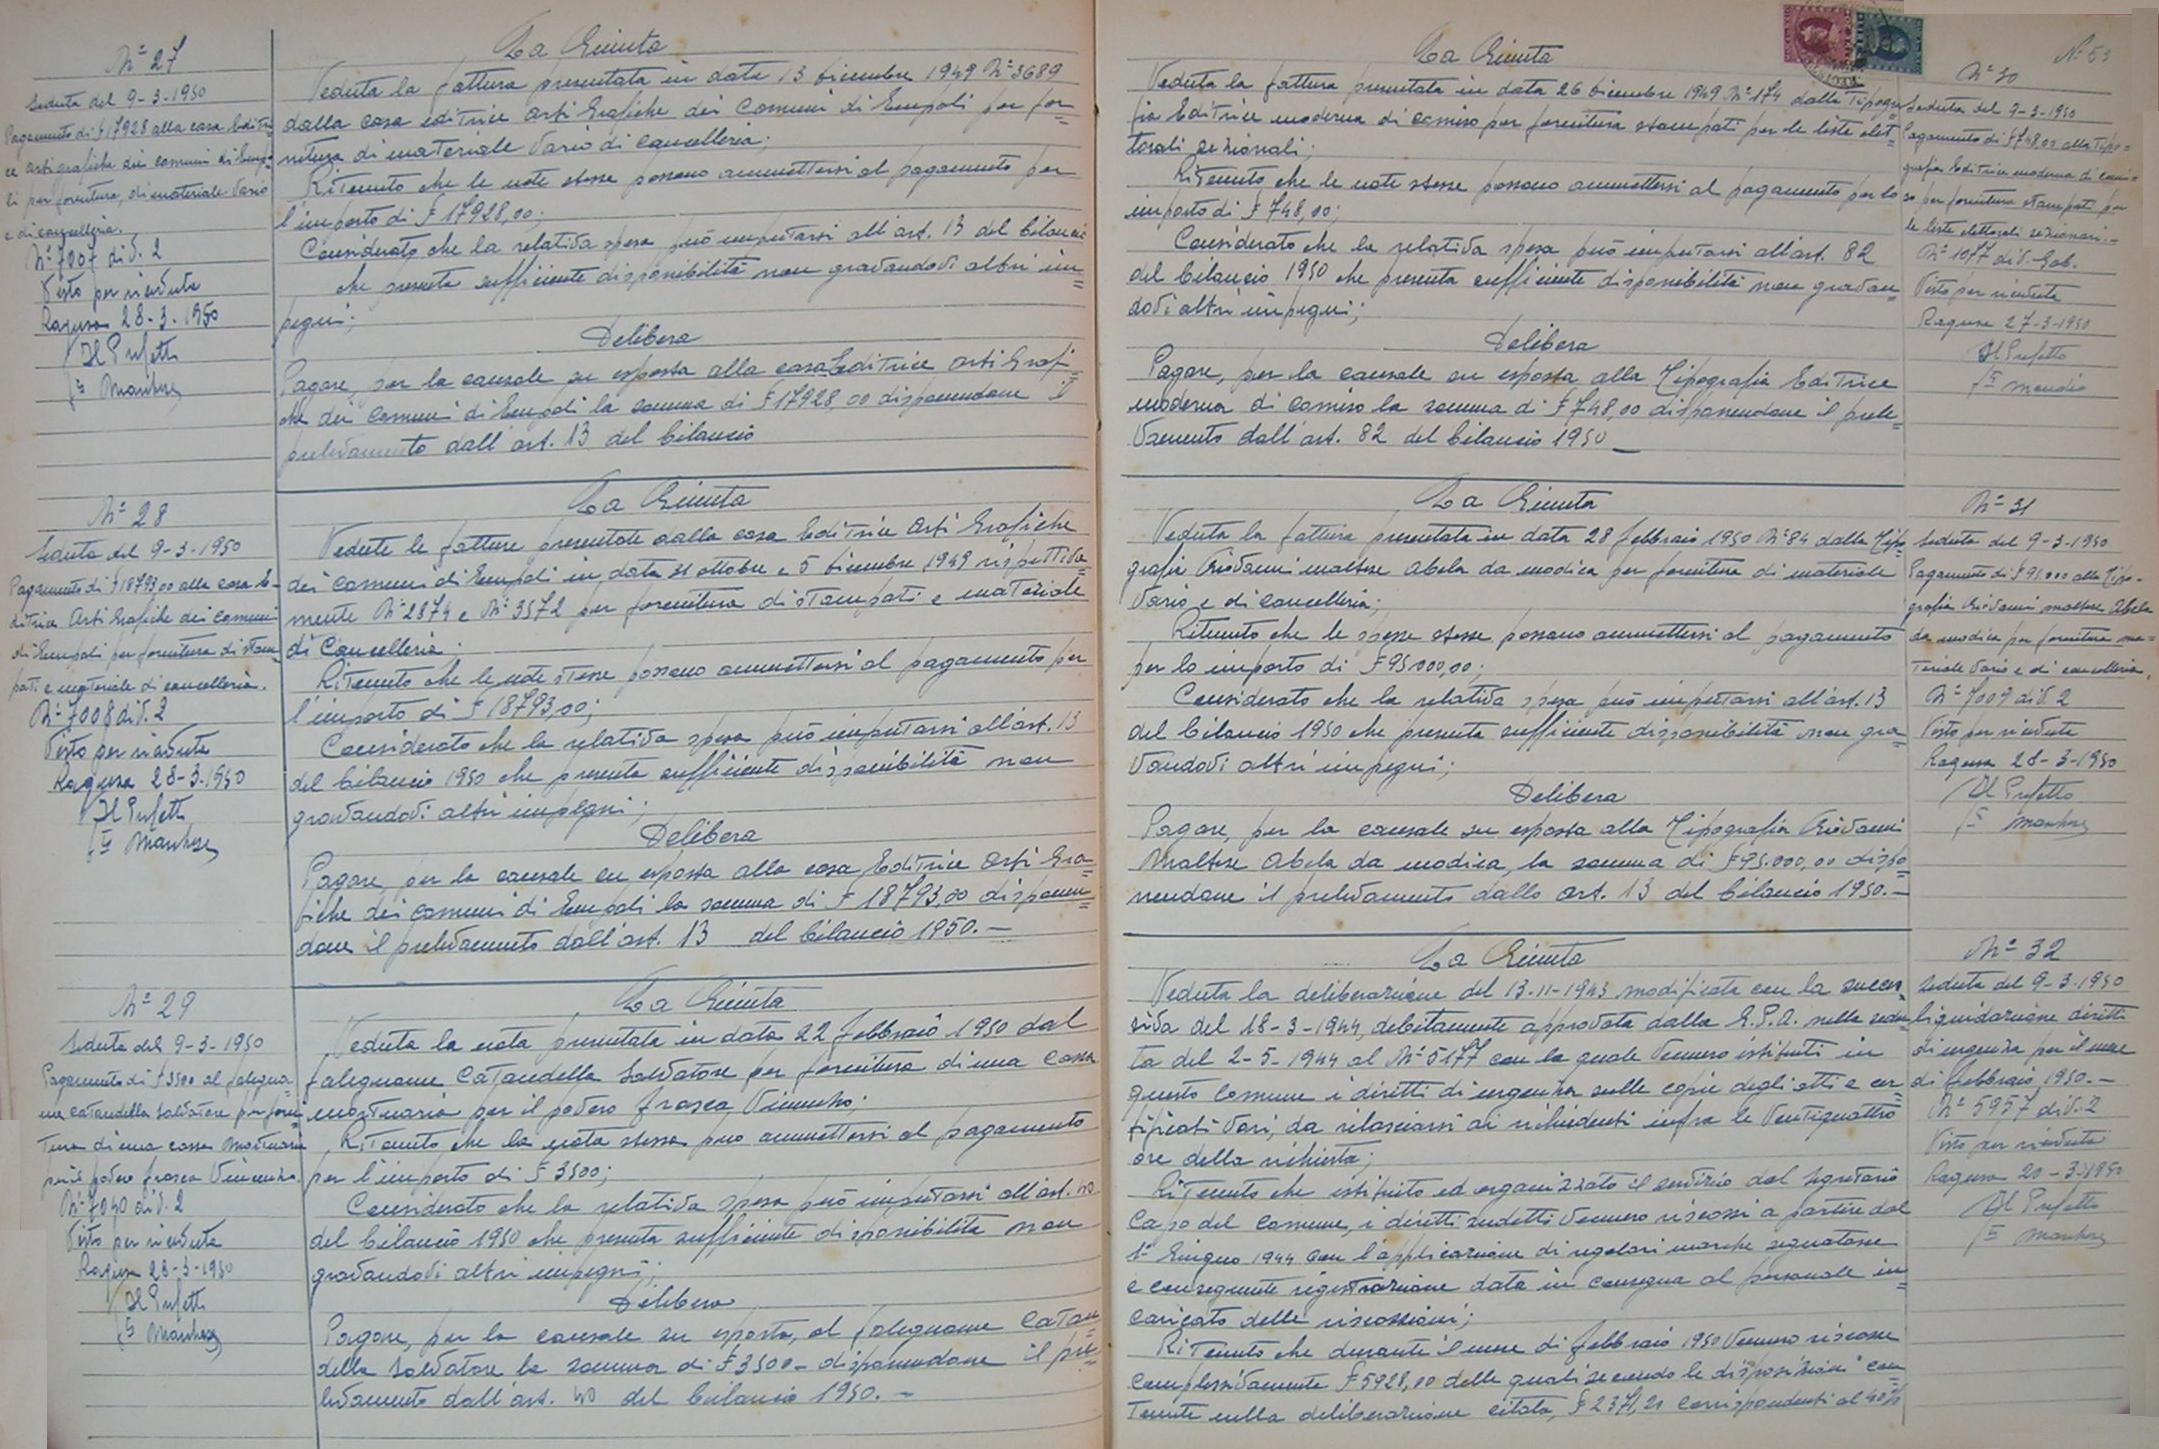 N° 27
Seduta del 9-3-1950
Pagamento di £ 17928 alla casa Editri
ce arti grafiche dei comuni di Empo=
li per fornitura, di materiale vario
e di cancelleria.
N° 7007 div. 2
Visto per ricevuta
Ragusa 28-3-1950
Il Prefetto
La Giunta
Veduta la fattura presentata in data 13 dicembre 1949 N° 3689
dalla casa editrice arti Grafiche dei Comuni di Empoli per for=
nitura di materiale vario di cancelleria;
Ritenuto che le note stesse possono ammettersi al pagamento per
l'importo di £ 17928,00;
Considerato che la relativa spesa può imputarsi all'art. 13 del bilancio
che presenta sufficiente disponibilità non gravandovi altri im=
pegni;
Delibera
Pagare, per la causale su esposta alla casa Editrice Arti Grafi=
che dei comuni di Empoli la somma di £ 17928,00 disponendone il
prelevamento dall'art. 13 del bilancio
N° 28
Seduta del 9-3-1950
Pagamento di £ 18793,00 alla casa E=
ditrice Arti Grafiche dei comuni
di Empoli per fornitura di stam=
pati e materiale di cancelleria.
N° 7008 div. 2
Visto per ricevuta
Ragusa 28-3-1950
Il Prefetto
La Giunta
Vedute le fatture presentate dalla casa Editrice Arti Grafiche
dei comuni di Empoli in data 31 ottobre e 5 dicembre 1949 rispettiva=
mente N° 2874 e N° 3572 per fornitura di stampati e materiale
di Cancelleria.
Ritenuto che le note stesse possono ammettersi al pagamento per
l'importo di £ 18793,00;
Considerato che la relativa spesa può imputarsi all'art. 13
del bilancio 1950 che presenta sufficiente disponibilità non
gravandovi altri impegni;
Delibera
Pagare, per la causale su esposta alla casa Editrice Arti Gra=
fiche dei comuni di Empoli la somma di £ 18793,00 disponen=
done il prelevamento dall'art. 13 del bilancio 1950.—
N° 29
Seduta del 9-3-1950
Pagamento di £ 3500 al falegna
me catandella Salvatore per forni
tura di una cassa mortuaria
per il povero frasca Vincenzo.
N° 7040 div. 2
Visto per ricevuta
Ragusa 28-3-1950
Il Prefetto
La Giunta
Veduta la nota presentata in data 22 febbraio 1950 dal
falegname Catandella Salvatore per fornitura di una cassa
mortuaria per il povero frasca Vincenzo;
Ritenuto che la nota stessa può ammettersi al pagamento
per l'importo di £ 3500;
Considerato che la relativa spesa può imputarsi all'art. 40
del bilancio 1950 che presenta sufficiente disponibilità non
gravandovi altri impegni;
Delibera
Pagare, per la causale su esposta, al falegname Catan=
della Salvatore la somma di £ 3500 – disponendone il pre=
levamento dall'art. 40 del bilancio 1950. –
La Giunta
Veduta la fattura presentata in data 26 dicembre 1949 N° 174 dalla Tipogra
fia Editrice moderna di comiso per fornitura stampati per le liste elet=
torali sezionali;
Ritenuto che le note stesse possono ammettersi al pagamento per lo
importo di £ 748,00;
Considerato che la relativa spesa può imputarsi all'art. 82
del bilancio 1950 che presenta sufficiente disponibilità non gravan=
dovi altri impegni;
Delibera
Pagare, per la causale su esposta alla Tipografia Editrice
moderna di comiso la somma di £ 748,00 disponendone il prele=
vamento dall'art. 82 del bilancio 1950 —
N° 53
N° 30
Seduta del 9-3-1950
Pagamento di £ 748,00 alla Tipo=
grafia Editrice moderna di comi=
so per fornitura stampati per
le liste elettorali sezionari.–
N° 1077 div. Gab.
Visto per ricevuta
Ragusa 27-3-1950
Il Prefetto
La Giunta
Veduta la fattura presentata in data 28 febbraio 1950 N° 84 dalla Tipo=
grafia Giovanni maltese Abela da modica per fornitura di materiale
vario e di cancelleria;
Ritenuto che le spese stesse possono ammettersi al pagamento
per lo importo di £ 95000,00;
Considerato che la relativa spesa può imputarsi all'art. 13
del bilancio 1950 che presenta sufficiente disponibilità non gra=
vandovi altri impegni;
Delibera
Pagare, per la causale su esposta alla Tipografia Giovanni
Maltese Abela da modica, la somma di £ 95.000,00 dispo=
nendone il prelevamento dallo art. 13 del bilancio 1950.—
N° 31
Seduta del 9-3-1950
Pagamento di £ 95000 alla Tipo=
grafia Giovanni maltese Abela
da modica per fornitura ma=
teriale vario e di cancelleria.
N° 7009 div. 2
Visto per ricevuta
Ragusa 28-3-1950
Il Prefetto
La Giunta
Veduta la deliberazione del 13-11-1943 modificata con la succes=
siva del 18-3-1944, debitamente approvata dalla G.P.A. nella sedu=
ta del 2-5-1944 al N° 5177 con la quale vennero istituiti in
questo comune i diritti di urgenza sulle copie degli atti e cer=
tificati vari, da rilasciarsi ai richiedenti infra le ventiquattro
ore della richiesta;
Ritenuto che istituito ed organizzato il servizio dal segretario
Capo del comune, i diritti sudetti vennero riscossi a partire dal
1° Giugno 1944 con l'applicazione di regolari marche segnatasse
e conseguente registrazione data in consegna al personale in=
caricato delle riscossioni;
Ritenuto che durante il mese di febbraio 1950 vennero riscosse
complessivamente £ 5928,00 delle quali secondo le disposizioni con=
tenute nella deliberazione citata, £ 2371,20 corrispondenti al 40%
N° 32
Seduta del 9-3-1950
liquidazione diritti
di urgenza per il mese
di febbraio 1950.–
N° 5957 div. 2
Visto per ricevuta
Ragusa 20-3-1950
Il Prefetto